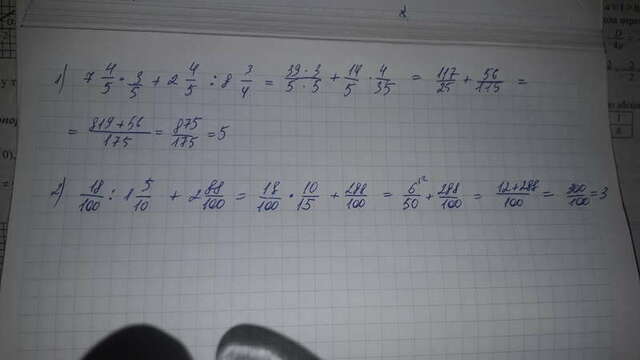 x
1) 7 4/5 · 3/5 + 2 4/5 : 8 3/4 = 39·3/5·5 + 14/5 · 4/35 = 117/25 + 56/175 =
= 819+56/175 = 875/175 = 5
2) 18/100 : 1 5/10 + 2 88/100 = 18/100 · 10/15 + 288/100 = 6/50 + 288/100 = 12+288/100 = 300/100 = 3